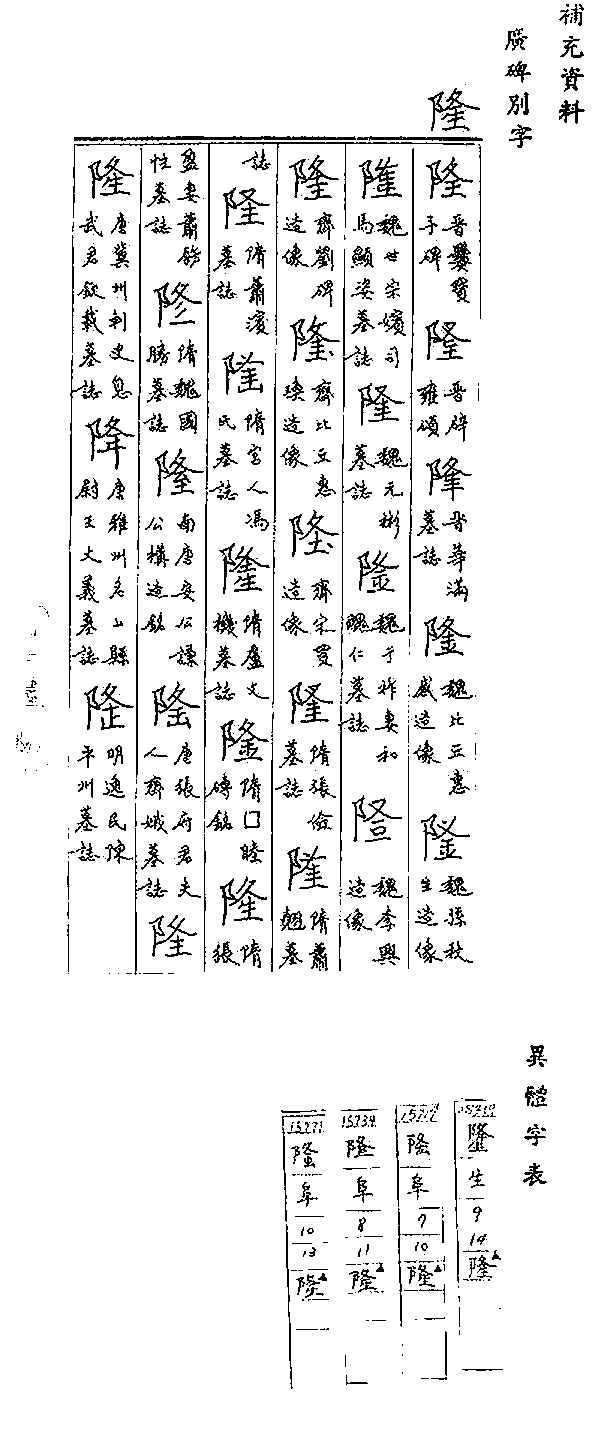 補充資料
廣碑別字
隆
隆晉爨寶子碑隆晉辟雍頌隆晉華滿墓誌隆魏比丘惠感造像隆魏孫秋生造像
隆魏世宗嬪司馬顯姿墓誌隆魏元彬墓誌隆魏于祚妻和醜仁墓誌隆魏李興造像
隆齊劉碑造像隆齊比丘惠瑍造像隆齊宋買造像隆隋張儉墓誌隆隋蕭翹墓
誌隆隋蕭濱墓誌隆隋宮人馮氏墓誌隆隋盧文機墓誌隆隋囗睦磚銘隆隋張
盈妻蕭餝性墓誌隆隋魏國勝墓誌隆南唐安公謀公構造銘隆唐張府君夫人齊娥墓誌隆
隆唐冀州刺史息武君欽載墓誌隆唐雅州名山縣尉王大義墓誌隆明逸民陳平州墓誌
異體字表
隆
生
9
14
隆
隆
阜
7
10
隆
15734
隆
阜
8
11
隆
隆
阜
10
13
隆